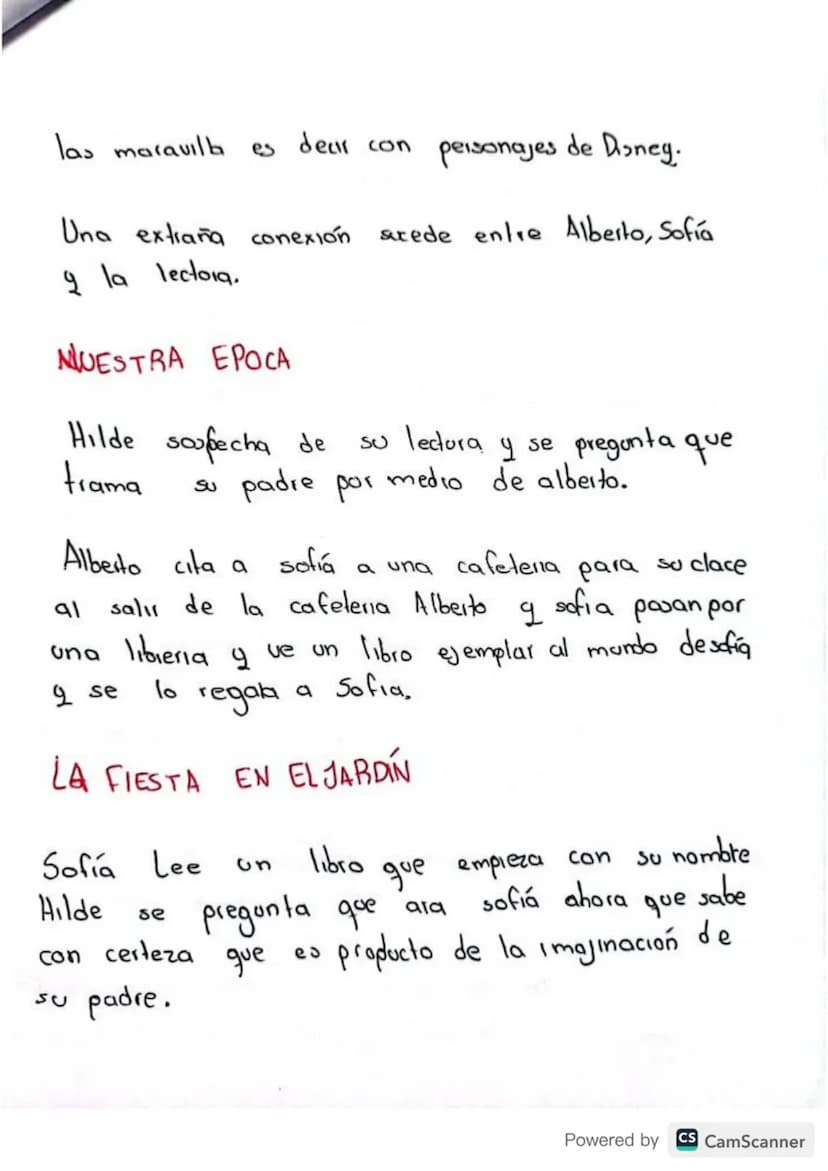 las maravilla es decir con personajes de Disney.
Una extraña conexión sucede entre Alberto, Sofía
y la lectora.
NUESTRA EPOCA
Hilde sospecha de su lectora y se pregunta que
trama su padre por medio de alberto.
Alberto cita a sofiá a una cafeteria para su clace
al salir de la cafeteria Alberto y sofia pasan por
una libreria y ve un libro ejemplar al mundo de sofía
y se lo regala a Sofia.
LA FIESTA EN EL JARDÍN
Sofía Lee un libro que empieza con su nombre
Hilde se pregunta que ara sofiá ahora que sabe
con certeza que es producto de la imajinación de
su padre.
Powered by CS CamScanner